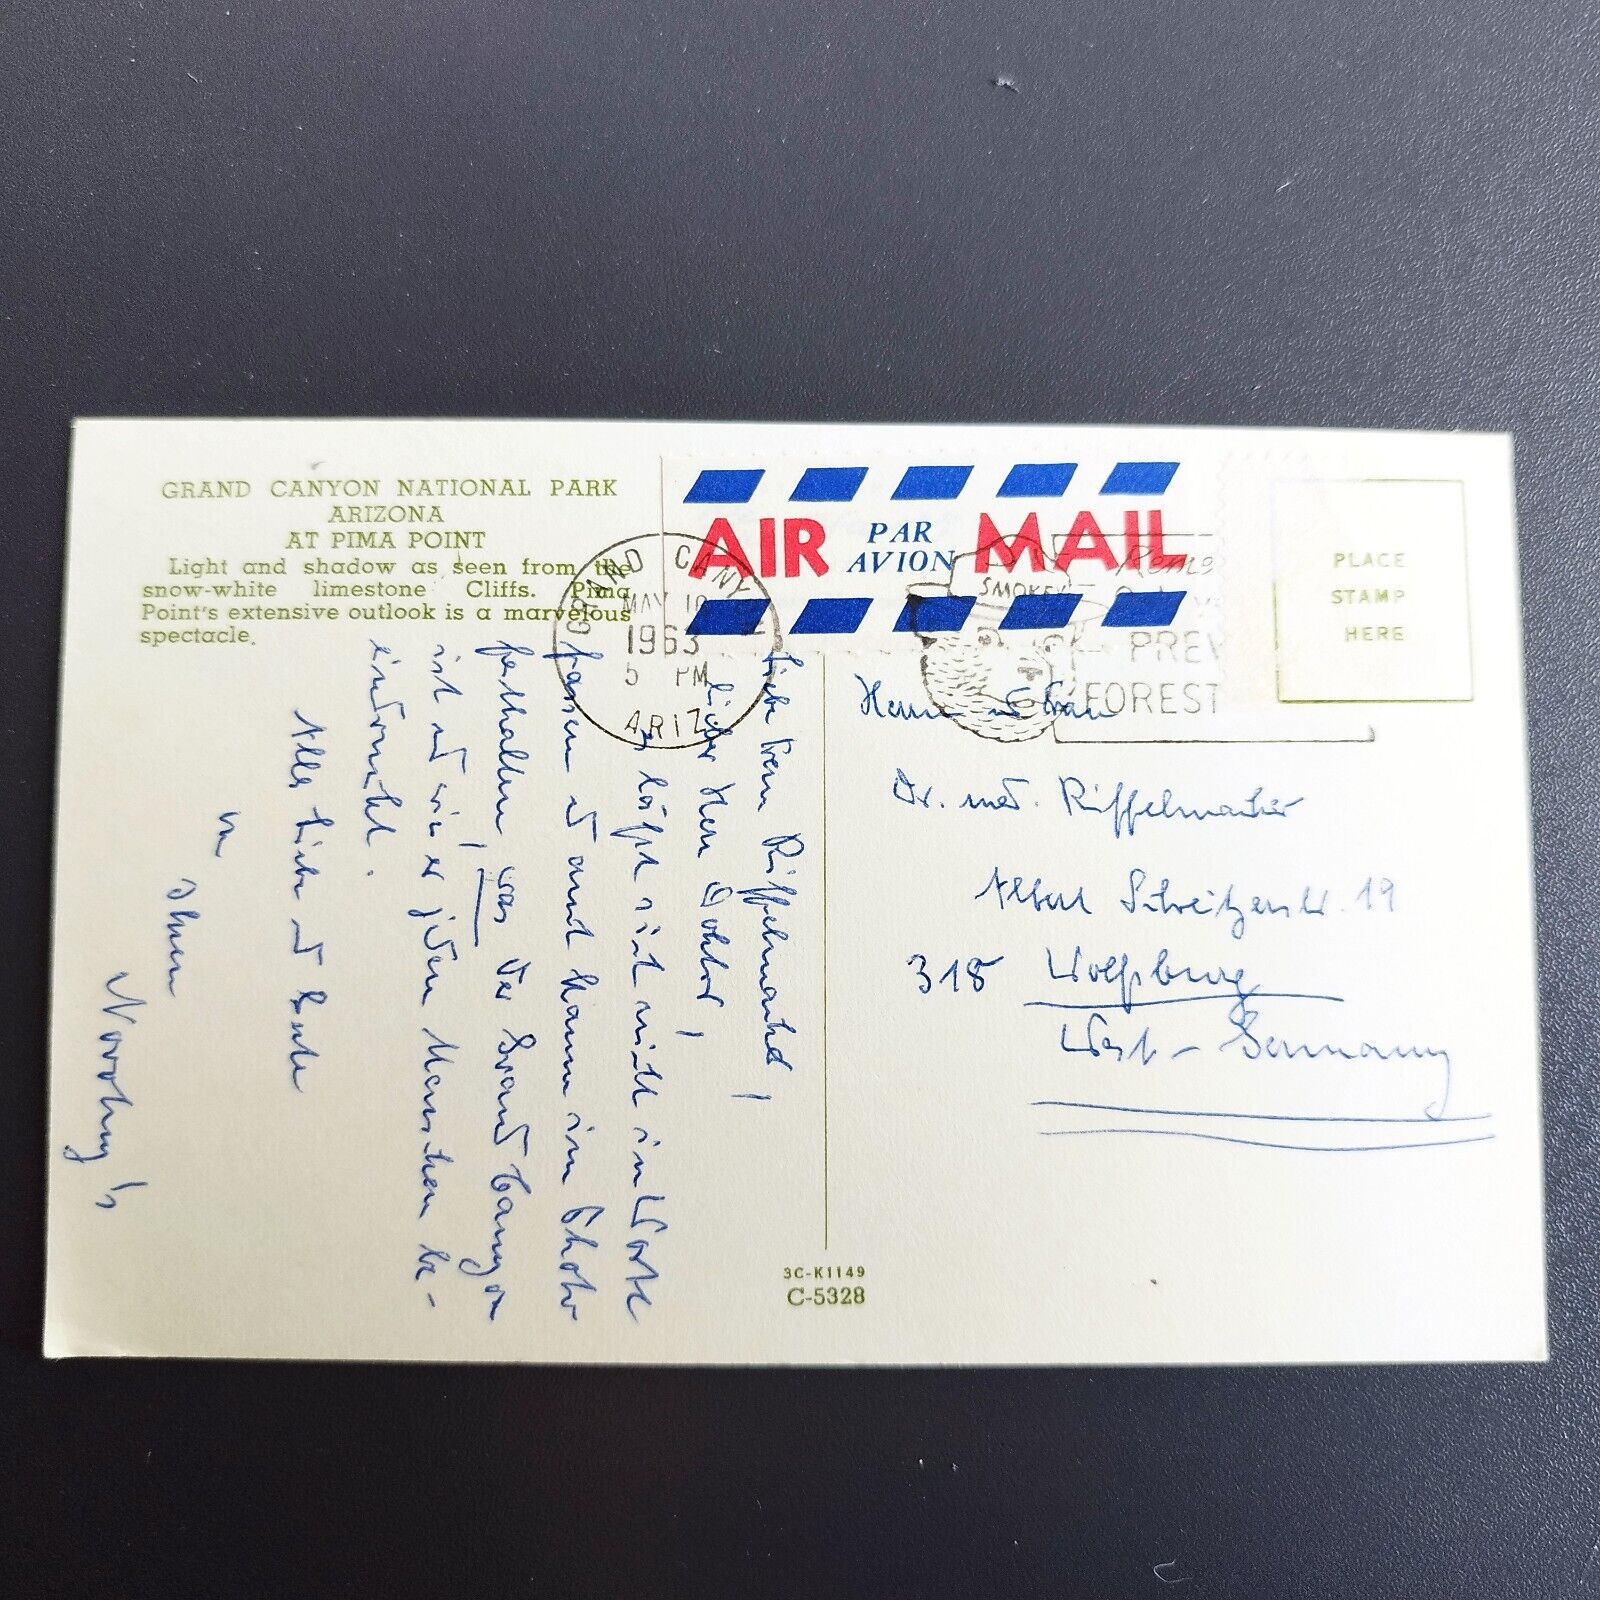 GRAND CANYON NATIONAL PARK
ARIZONA
AT PIMA POINT
Light and shadow as seen from the
snow-white limestone Cliffs. Pima
Point's extensive outlook is a marvelous
spectacle.
AIR PAR AVION MAIL
GRAND CANY
MAY 10
1963
5 PM
ARIZ
SMOKEY
PREV
FOREST
PLACE
STAMP
HERE
Liebe Frau Riffelmacher,
lieber Herr Doktor,
es läßt sich nicht in Worte
fassen u. auch kaum im Photo
festhalten, was der Grand Canyon
ist und wie er jeden Menschen be-
eindruckt.
Alles Liebe und Gute
Ihnen
Herrn u. Frau
Dr. med. Riffelmacher
Albert Schweitzerstr. 19
318 Wolfsburg
West-Germany
3C-K1149
C-5328